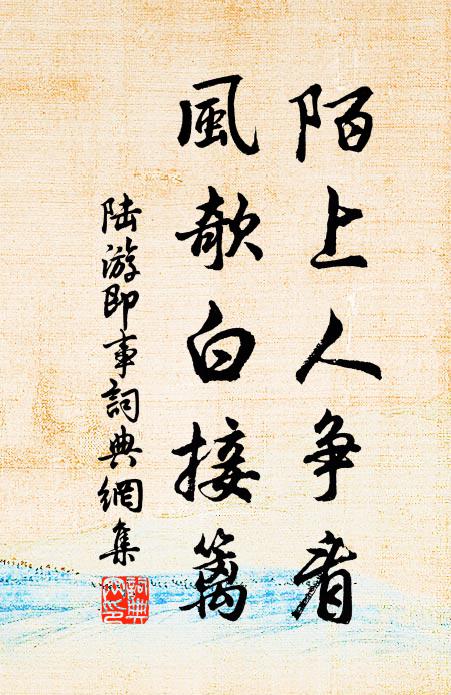 陌上人争看
風欹白接篱
陆游即事詞典網集